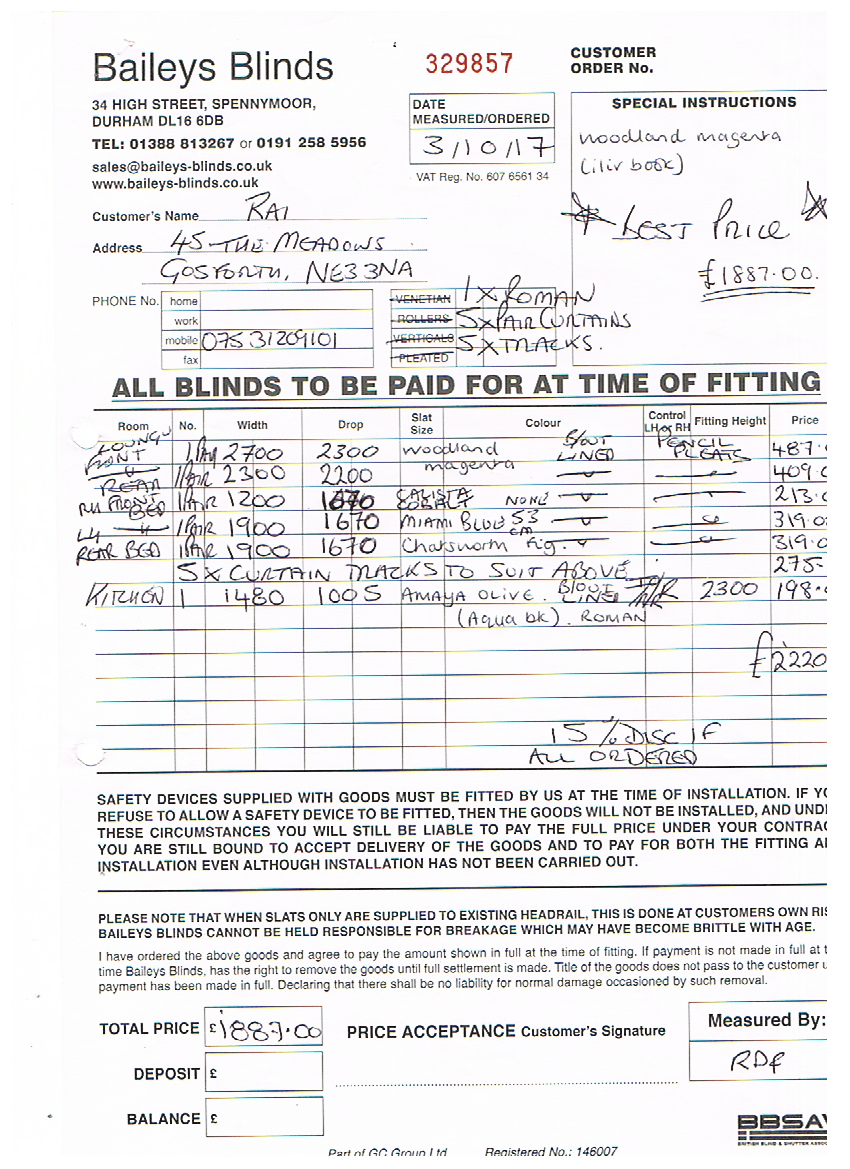 Baileys Blinds
34 HIGH STREET, SPENNYMOOR,
DURHAM DL16 6DB
TEL: 01388 813267 or 0191 258 5956
sales@baileys-blinds.co.uk
www.baileys-blinds.co.uk
329857
DATE
MEASURED/ORDERED
3/10/17
VAT Reg. No. 607 6561 34
CUSTOMER
ORDER No.
SPECIAL INSTRUCTIONS
woodland magenta
BEST PRICE
£1887.00.
Customer's Name RAI
Address 45 THE MEADOWS
GOSFORTH, NE3 3NA
PHONE No. home
work
mobile 07531209101
fax
VENETIAN 1 X ROMAN
ROLLERS 5 x PAIR CURTAINS
VERTICALS 5 x TRACKS.
PLEATED
ALL BLINDS TO BE PAID FOR AT TIME OF FITTING
Room No. Width Drop Slat Size Colour Control LH or RH Fitting Height Price
LOUNGE FRONT 1 PAIR 2700 2300 woodland magenta B/OUT LINED PENCIL PLEATS 487.
REAR 1 PAIR 2300 2200 409.0
RH FRONT BED 1 PAIR 1200 1670 CALISTA COBALT NONE 213.0
LH 1 PAIR 1900 1670 MIAMI BLUE 53 cm 319.0
REAR BED 1 PAIR 1900 1670 Chatsworth Fig. 319.0
5 X CURTAIN TRACKS TO SUIT ABOVE 275-
KITCHEN 1 1480 1005 AMAYA OLIVE. B/OUT LINED 2300 198.
(Aqua bk). ROMAN
£2220
15% DISC IF
ALL ORDERED
SAFETY DEVICES SUPPLIED WITH GOODS MUST BE FITTED BY US AT THE TIME OF INSTALLATION. IF YO
REFUSE TO ALLOW A SAFETY DEVICE TO BE FITTED, THEN THE GOODS WILL NOT BE INSTALLED, AND UND
THESE CIRCUMSTANCES YOU WILL STILL BE LIABLE TO PAY THE FULL PRICE UNDER YOUR CONTRAC
YOU ARE STILL BOUND TO ACCEPT DELIVERY OF THE GOODS AND TO PAY FOR BOTH THE FITTING A
INSTALLATION EVEN ALTHOUGH INSTALLATION HAS NOT BEEN CARRIED OUT.
PLEASE NOTE THAT WHEN SLATS ONLY ARE SUPPLIED TO EXISTING HEADRAIL, THIS IS DONE AT CUSTOMERS OWN RIS
BAILEYS BLINDS CANNOT BE HELD RESPONSIBLE FOR BREAKAGE WHICH MAY HAVE BECOME BRITTLE WITH AGE.
I have ordered the above goods and agree to pay the amount shown in full at the time of fitting. If payment is not made in full at t
time Baileys Blinds, has the right to remove the goods until full settlement is made. Title of the goods does not pass to the customer u
payment has been made in full. Declaring that there shall be no liability for normal damage occasioned by such removal.
TOTAL PRICE £1887.00
DEPOSIT £
BALANCE £
PRICE ACCEPTANCE Customer's Signature
Measured By:
BBSA
BRITISH BLIND & SHUTTER ASSOC
Part of GC Group Ltd Registered No.: 146007